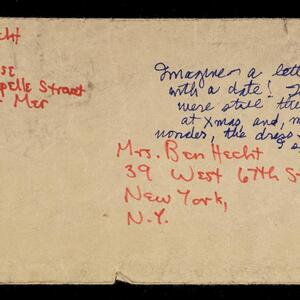 cht
Strant
Mer
Imagine - a lett
with a date!
were still the
at Xmas, and, m
wonder, the dress
Mrs. Ben Hecht
39 West 67th S
New York,
N.Y.